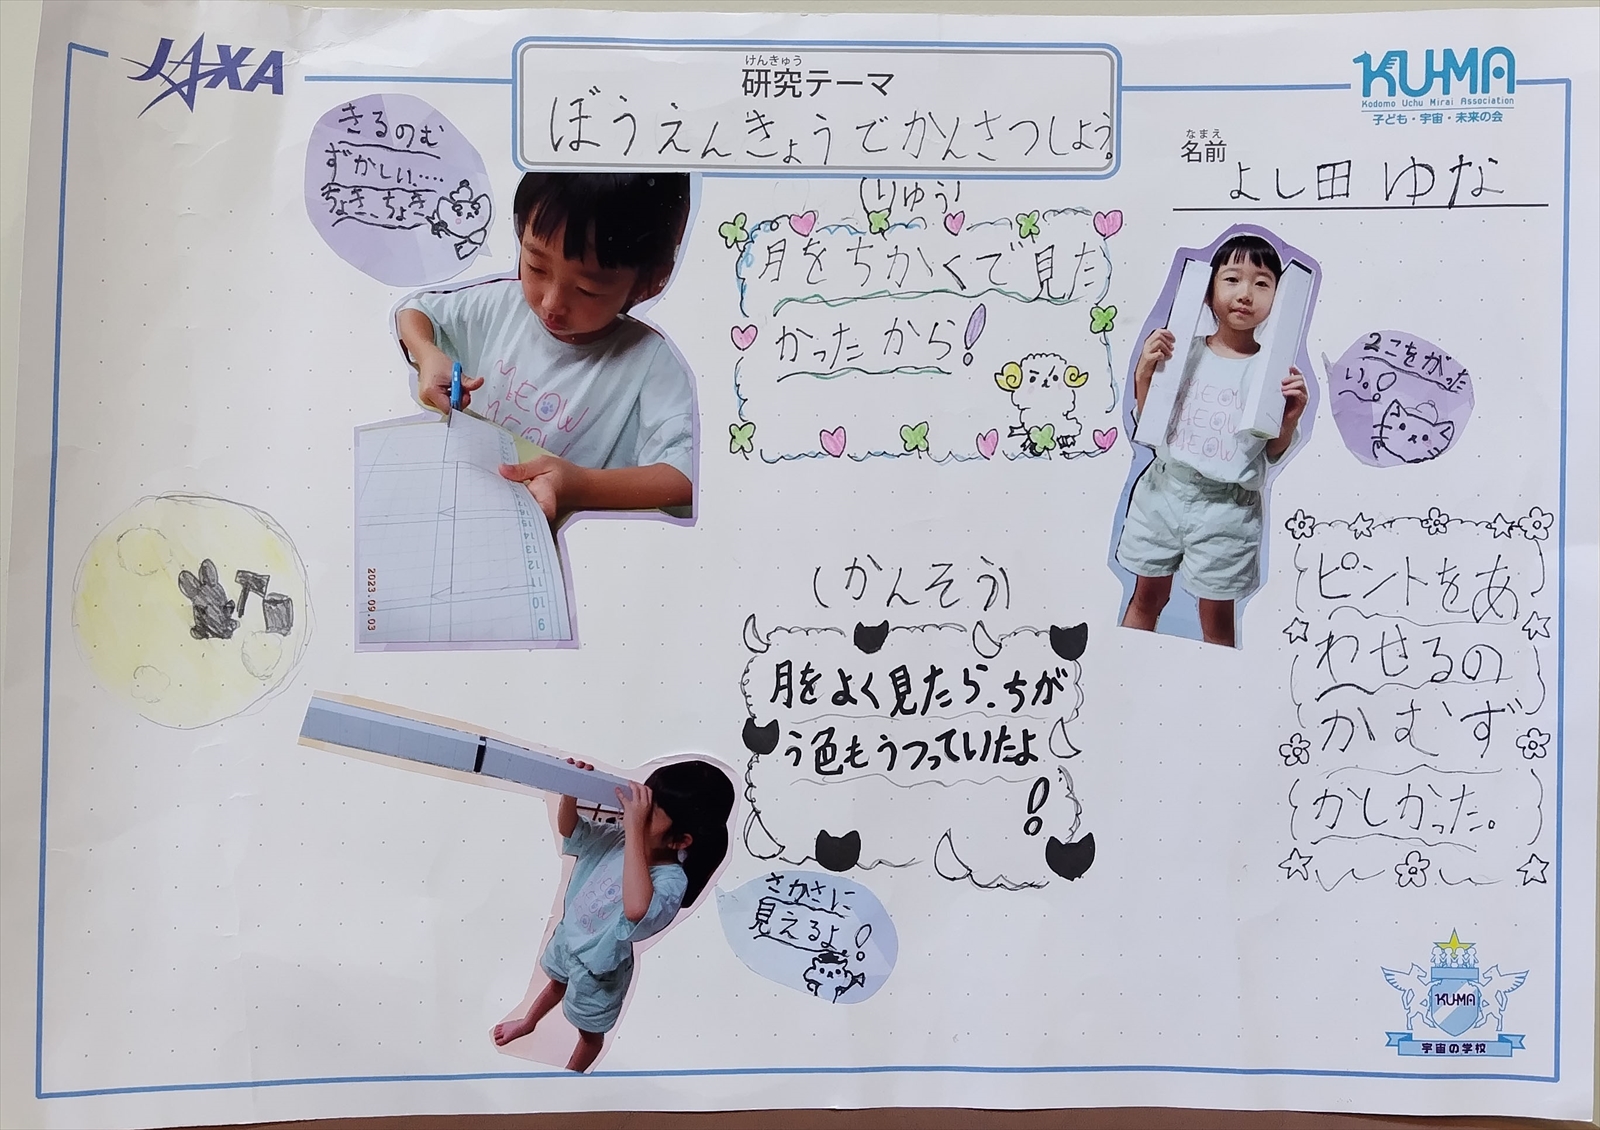 JAXA
けんきゅう
研究テーマ
ぼうえんきょうでかんさつしよう。
KU-MA
Kodomo Uchu Mirai Association
子ども・宇宙・未来の会
なまえ
名前
よし田 ゆな
きるのむ
ずかしい....
ちょき、ちょき
MEOW
MEOW
2023.09.03
16
15
14
13
12
11
10
9
(りゆう)
月をちかくで見た
かったから!
MEOW
MEOW
MEOW
2こをがったい。!
ピントをあ
わせるの
かむず
かしかった。
(かんそう)
月をよく見たら、ちが
う色もうつっていたよ
!
さかさに
見えるよ!
KU-MA
宇宙の学校